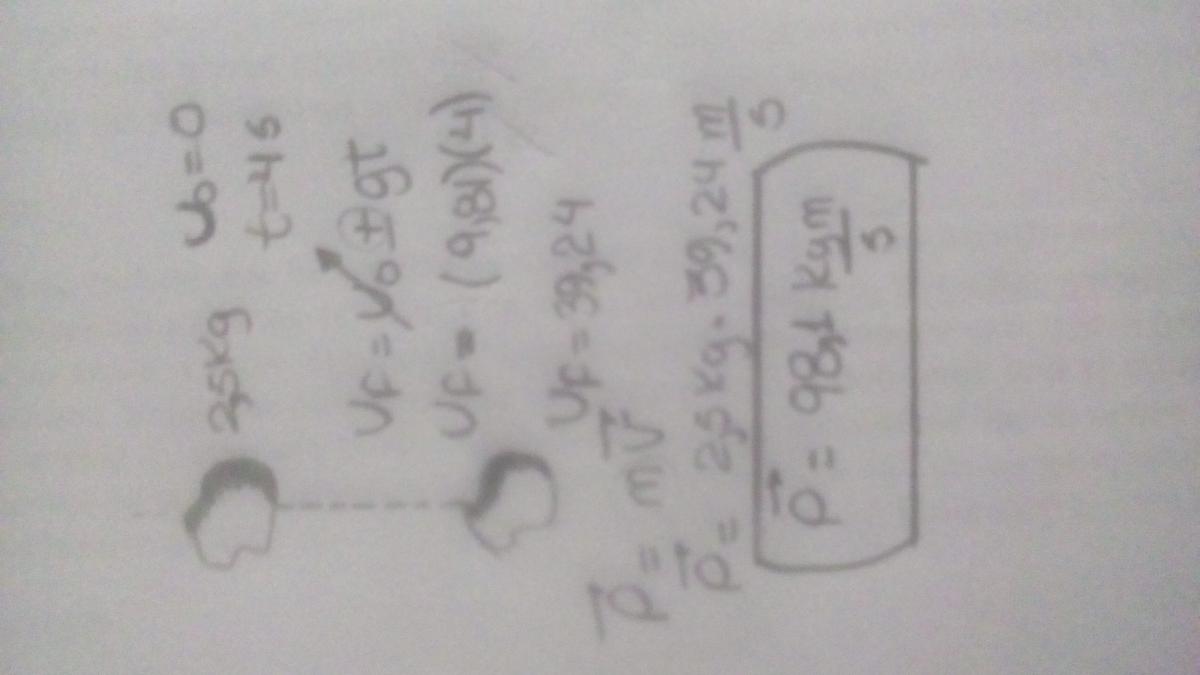 2,5 Kg Vo = 0
t = 4 s
Vf = Vo ± gt
Vf = (9,81)(4)
Vf = 39,24
P⃗ = m V⃗
P⃗ = 2,5 Kg · 39,24 m/s
P⃗ = 98,1 Kg m/s